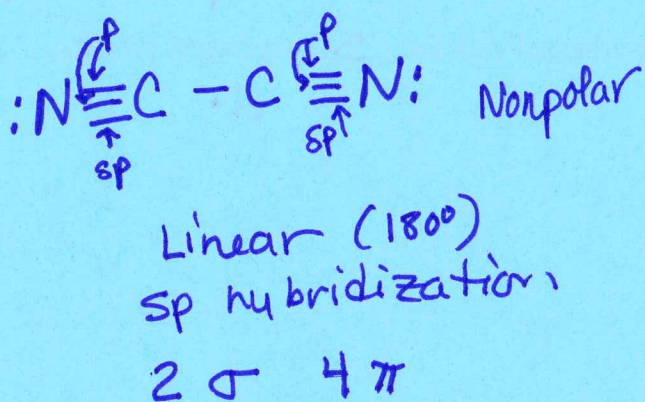 P P
:N≡C – C≡N: Nonpolar
sp sp
Linear (180°)
sp hybridization
2 σ 4 π